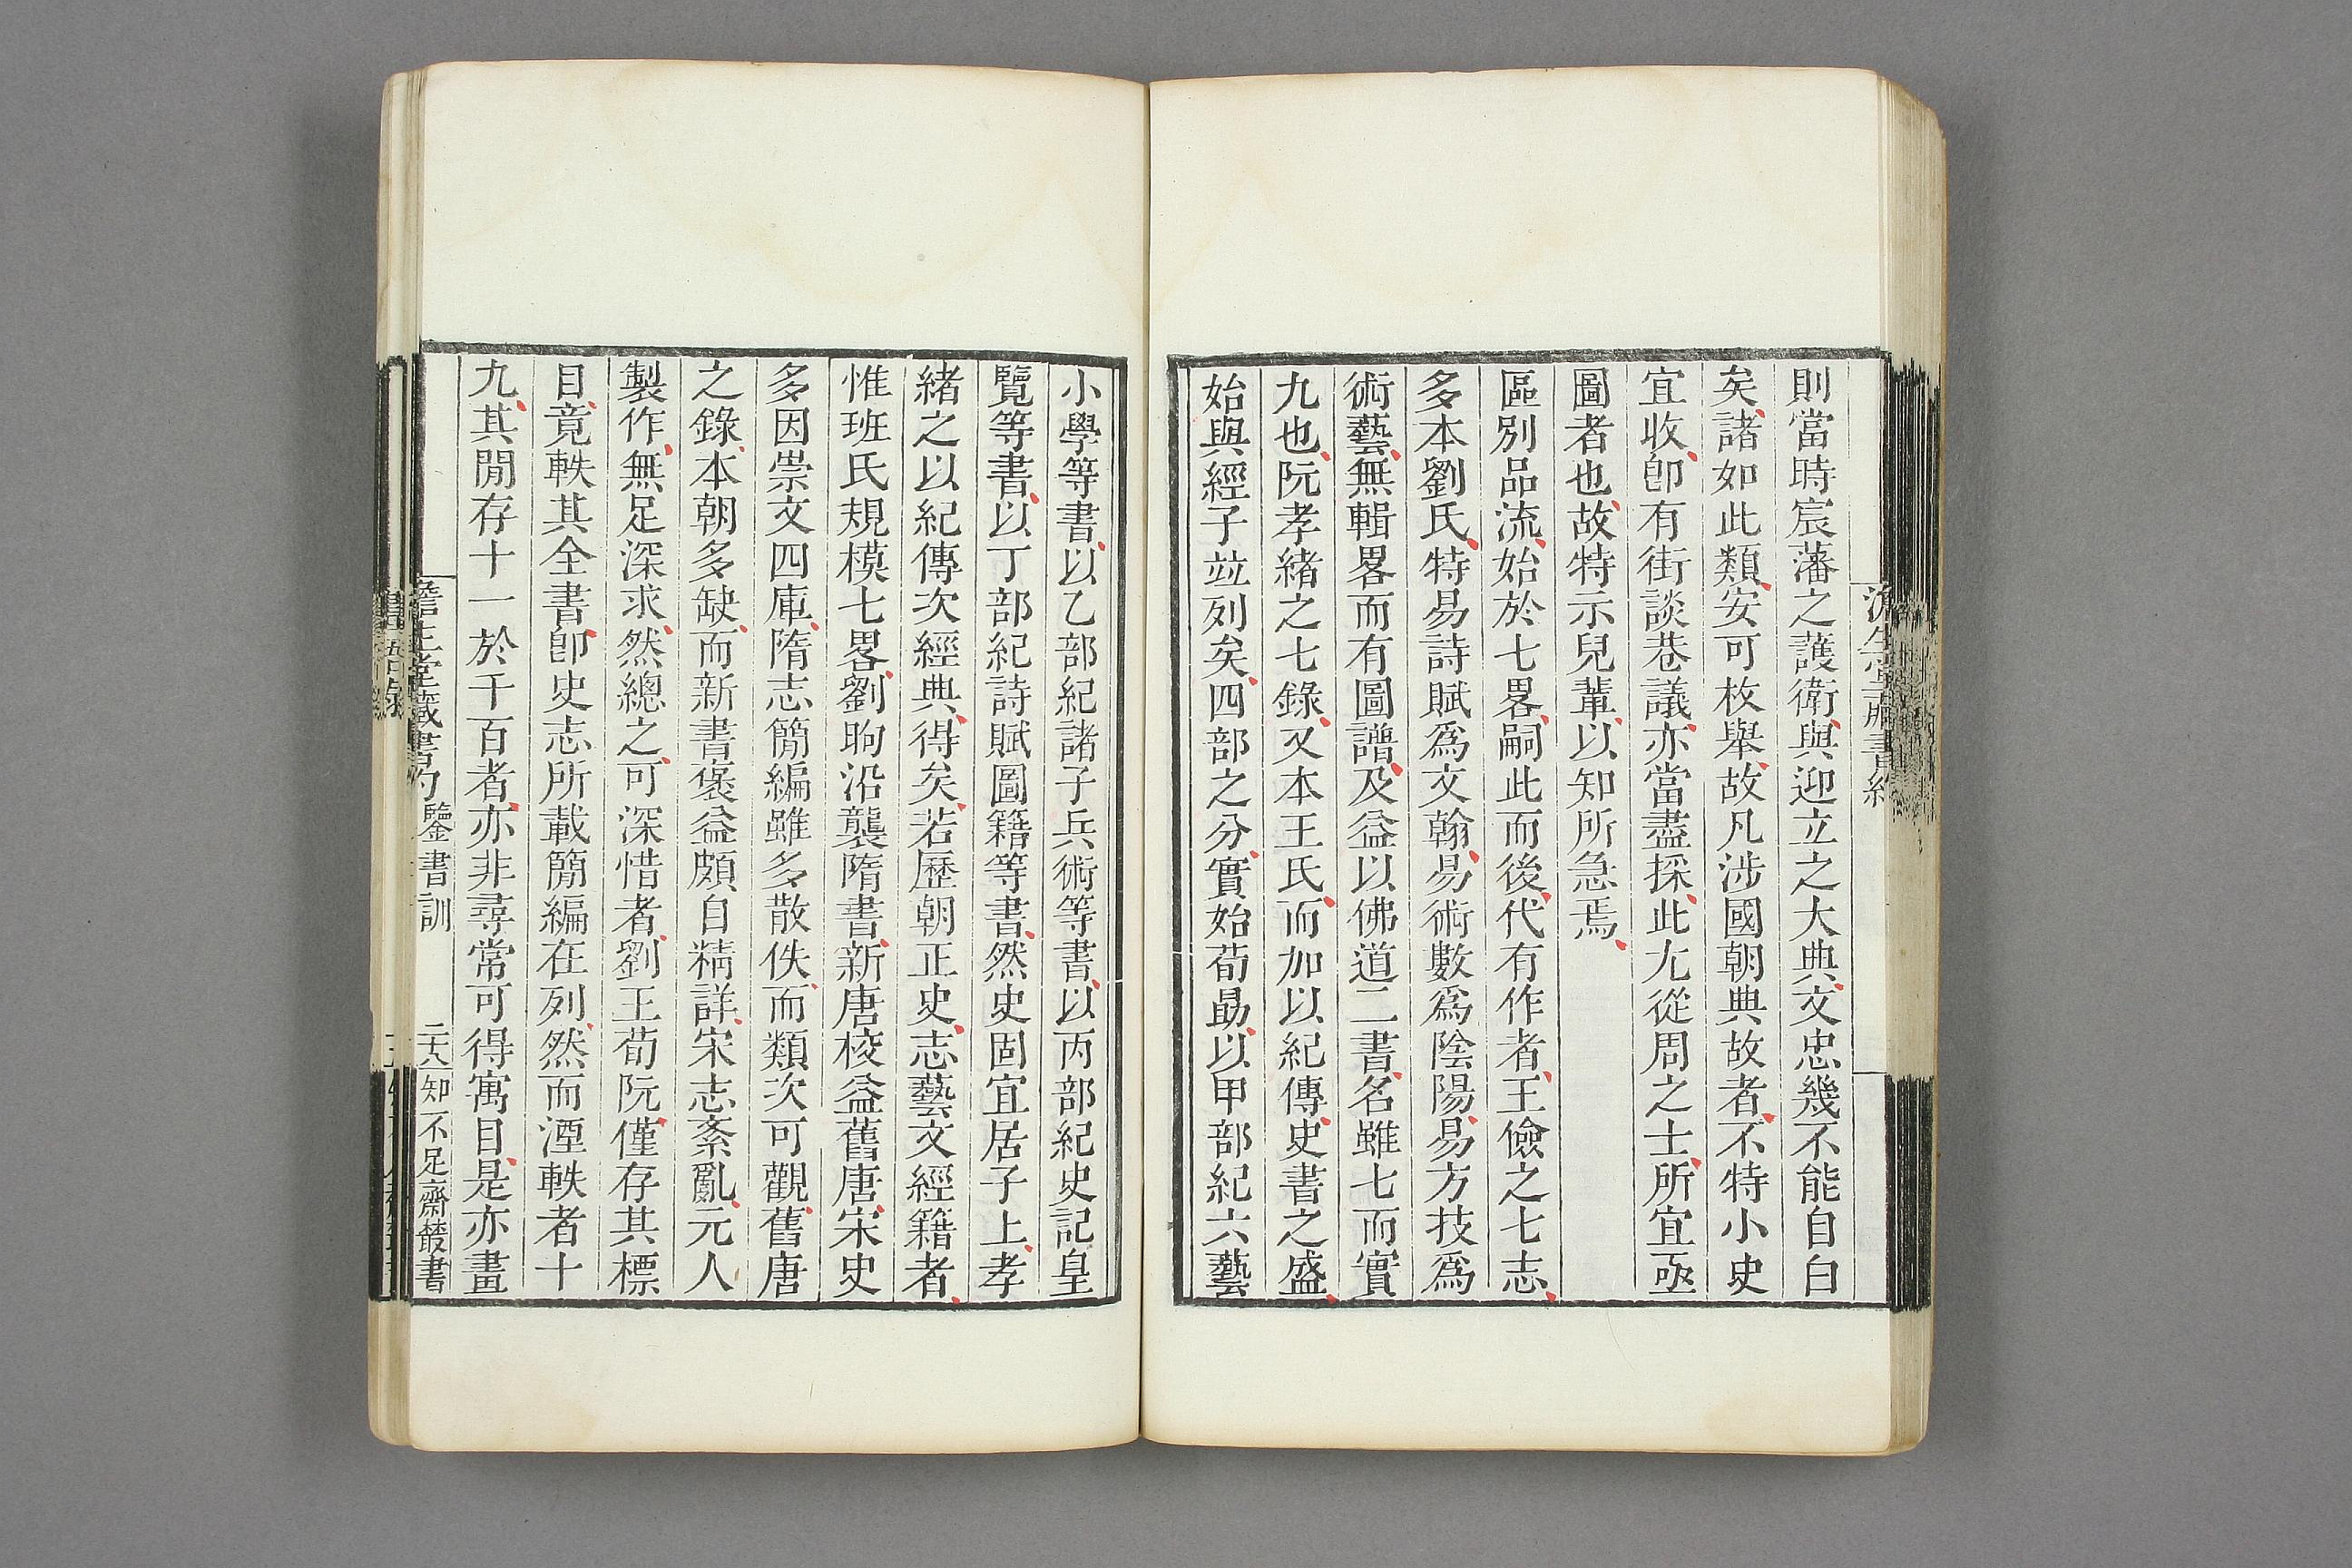 則當時宸藩之護衛與迎立之大典文忠幾不能自白
矣諸如此類安可枚舉故凡涉國朝典故者不特小史
宜收卽有街談巷議亦當盡採此尤從周之士所宜亟
圖者也故特示兒輩以知所急焉
區別品流始於七畧嗣此而後代有作者王儉之七志
多本劉氏特易詩賦爲文翰易術數爲陰陽易方技爲
術藝無輯畧而有圖譜及益以佛道二書名雖七而實
九也阮孝緒之七錄又本王氏而加以紀傳史書之盛
始與經子竝列矣四部之分實始荀勗以甲部紀六藝
小學等書以乙部紀諸子兵術等書以丙部紀史記皇
覽等書以丁部紀詩賦圖籍等書然史固宜居子上孝
緒之以紀傳次經典得矣若歷朝正史志藝文經籍者
惟班氏規模七畧劉昫沿襲隋書新唐校益舊唐宋史
多因崇文四庫隋志簡編雖多散佚而類次可觀舊唐
之錄本朝多缺而新書褒益頗自精詳宋志紊亂元人
製作無足深求然總之可深惜者劉王荀阮僅存其標
目竟軼其全書卽史志所載簡編在列然而湮軼者十
九其閒存十一於千百者亦非尋常可得寓目是亦畫
澹生堂藏書約 鑒書訓 二六 知不足齋叢書